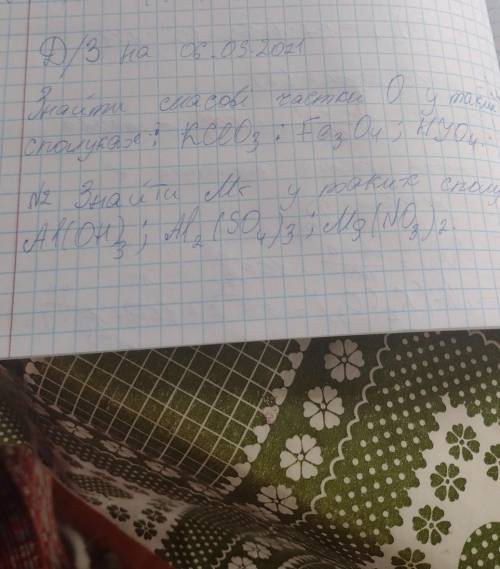 Д/З на 06.03.2021
Знайти масові частки O у таких
сполуках: KClO3; Fe3O4; HJO4.
№2 Знайти Mr у таких сполу
Al(OH)3; Al2(SO4)3; Mg(NO3)2.